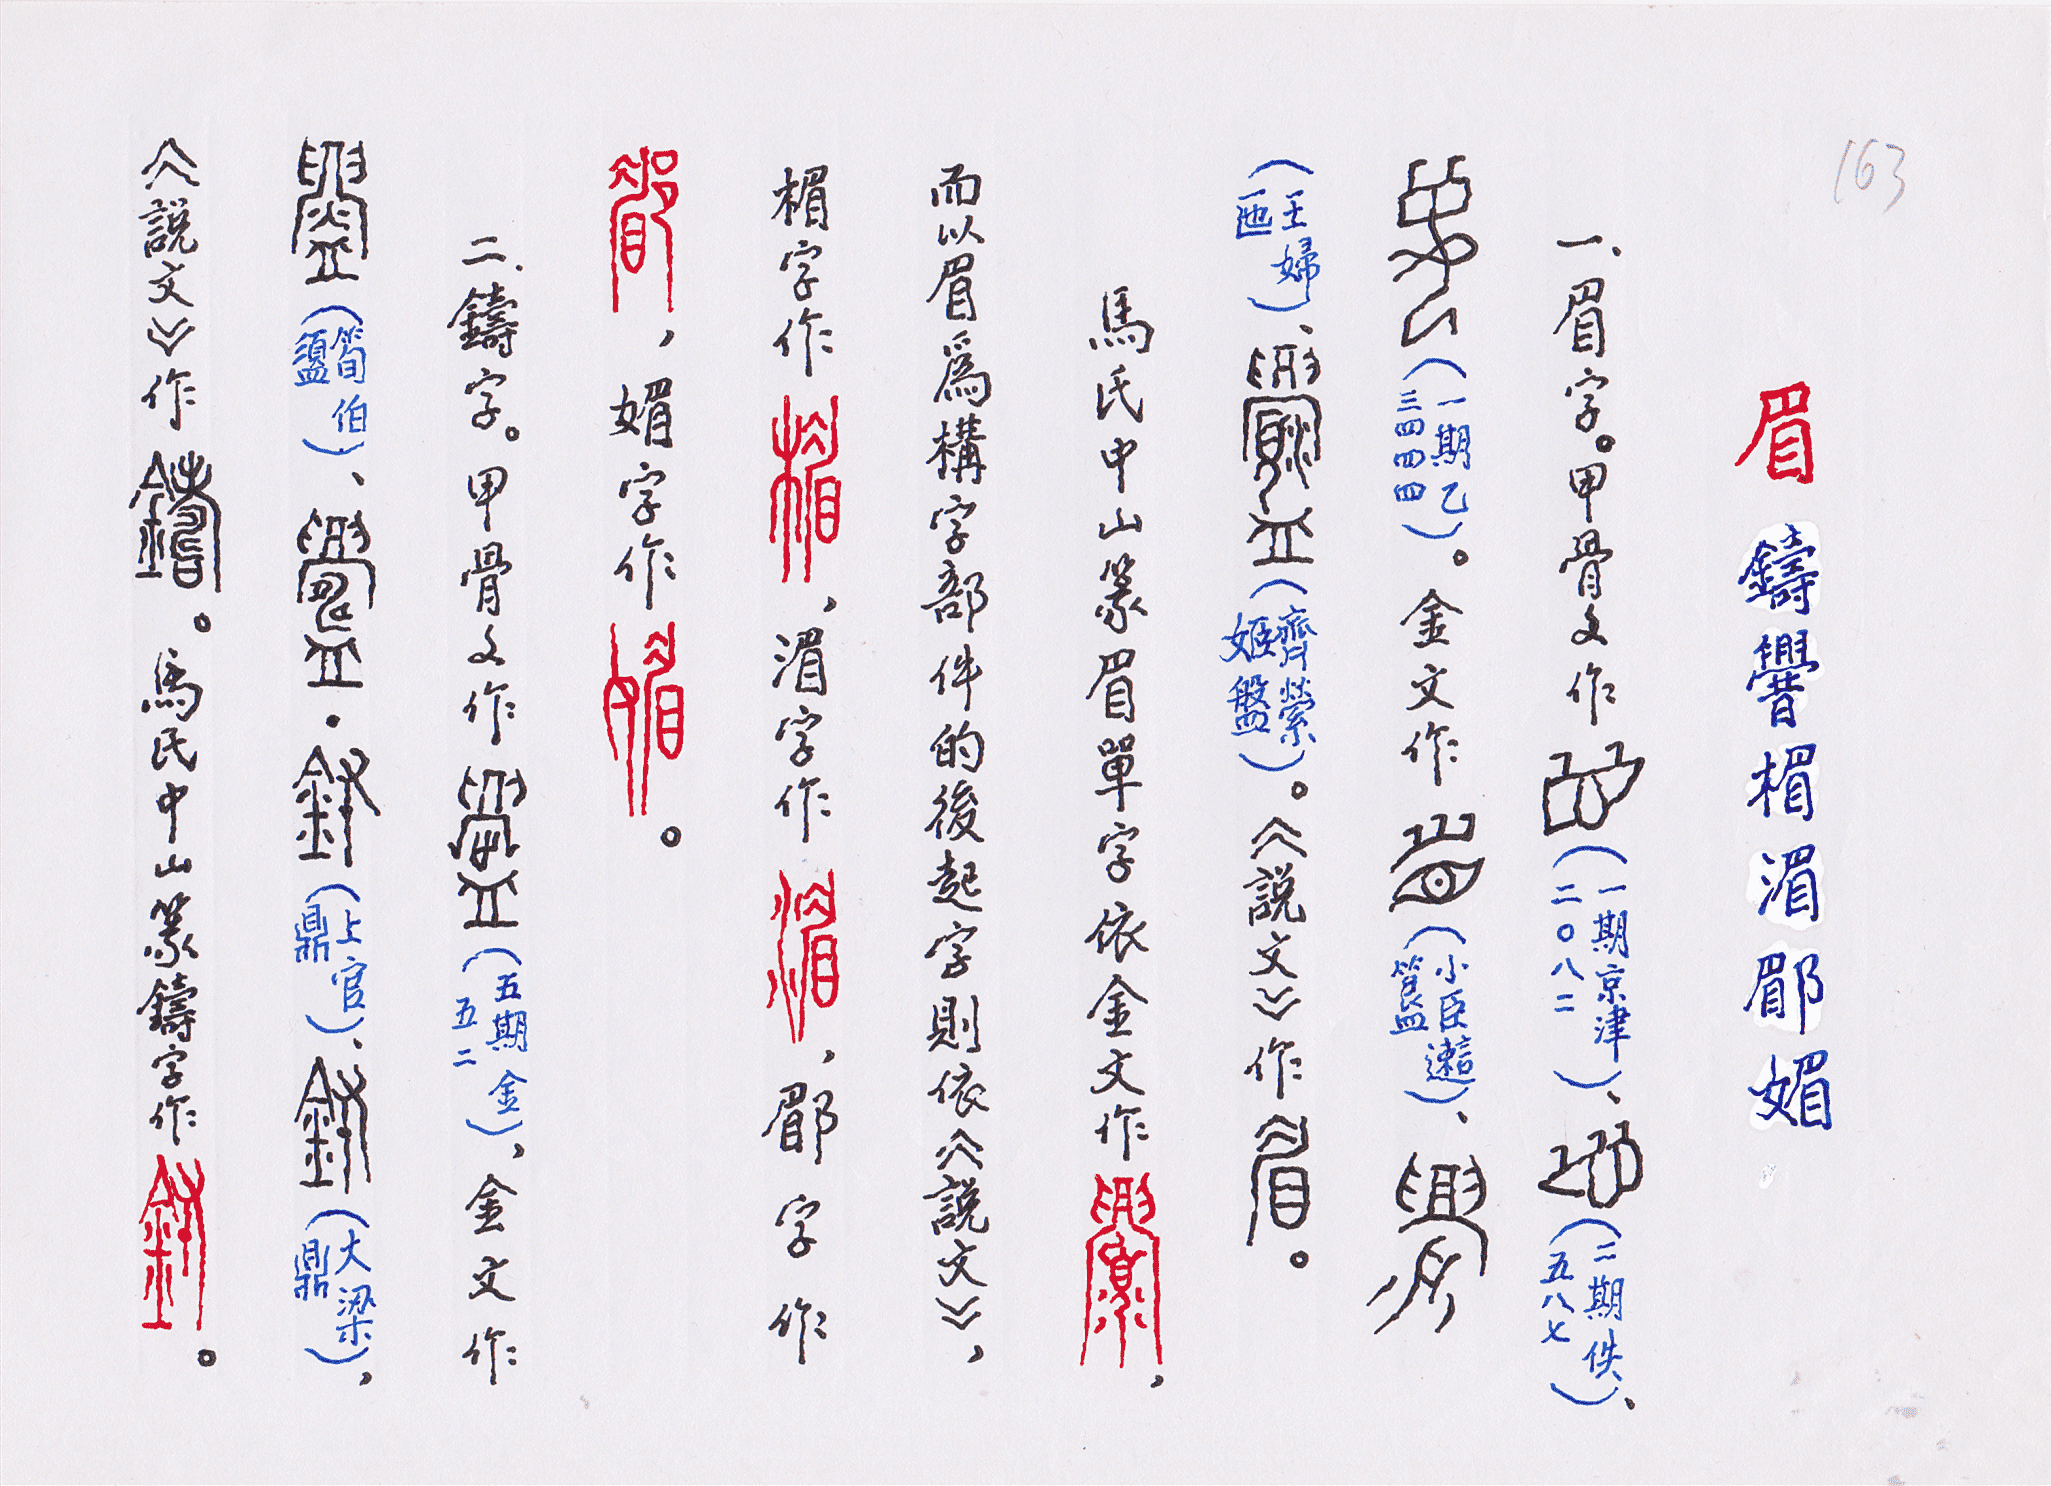 163
眉 鑄 釁 楣 湄 郿 媚
一、眉字。甲骨文作（一期京津二〇八二）、（二期佚五八七）、
（一期乙三四四四）。金文作（小臣簋）、
（王婦匜）、（齊縈姬盤）。《說文》作。
馬氏中山篆眉單字依金文作，
而以眉爲構字部件的後起字則依《說文》，
楣字作，湄字作，郿字作
，媚字作。
二、鑄字。甲骨文作（五期金五一二），金文作
（筍伯盨）、（上官鼎）、（大梁鼎），
《說文》作。馬氏中山篆鑄字作。